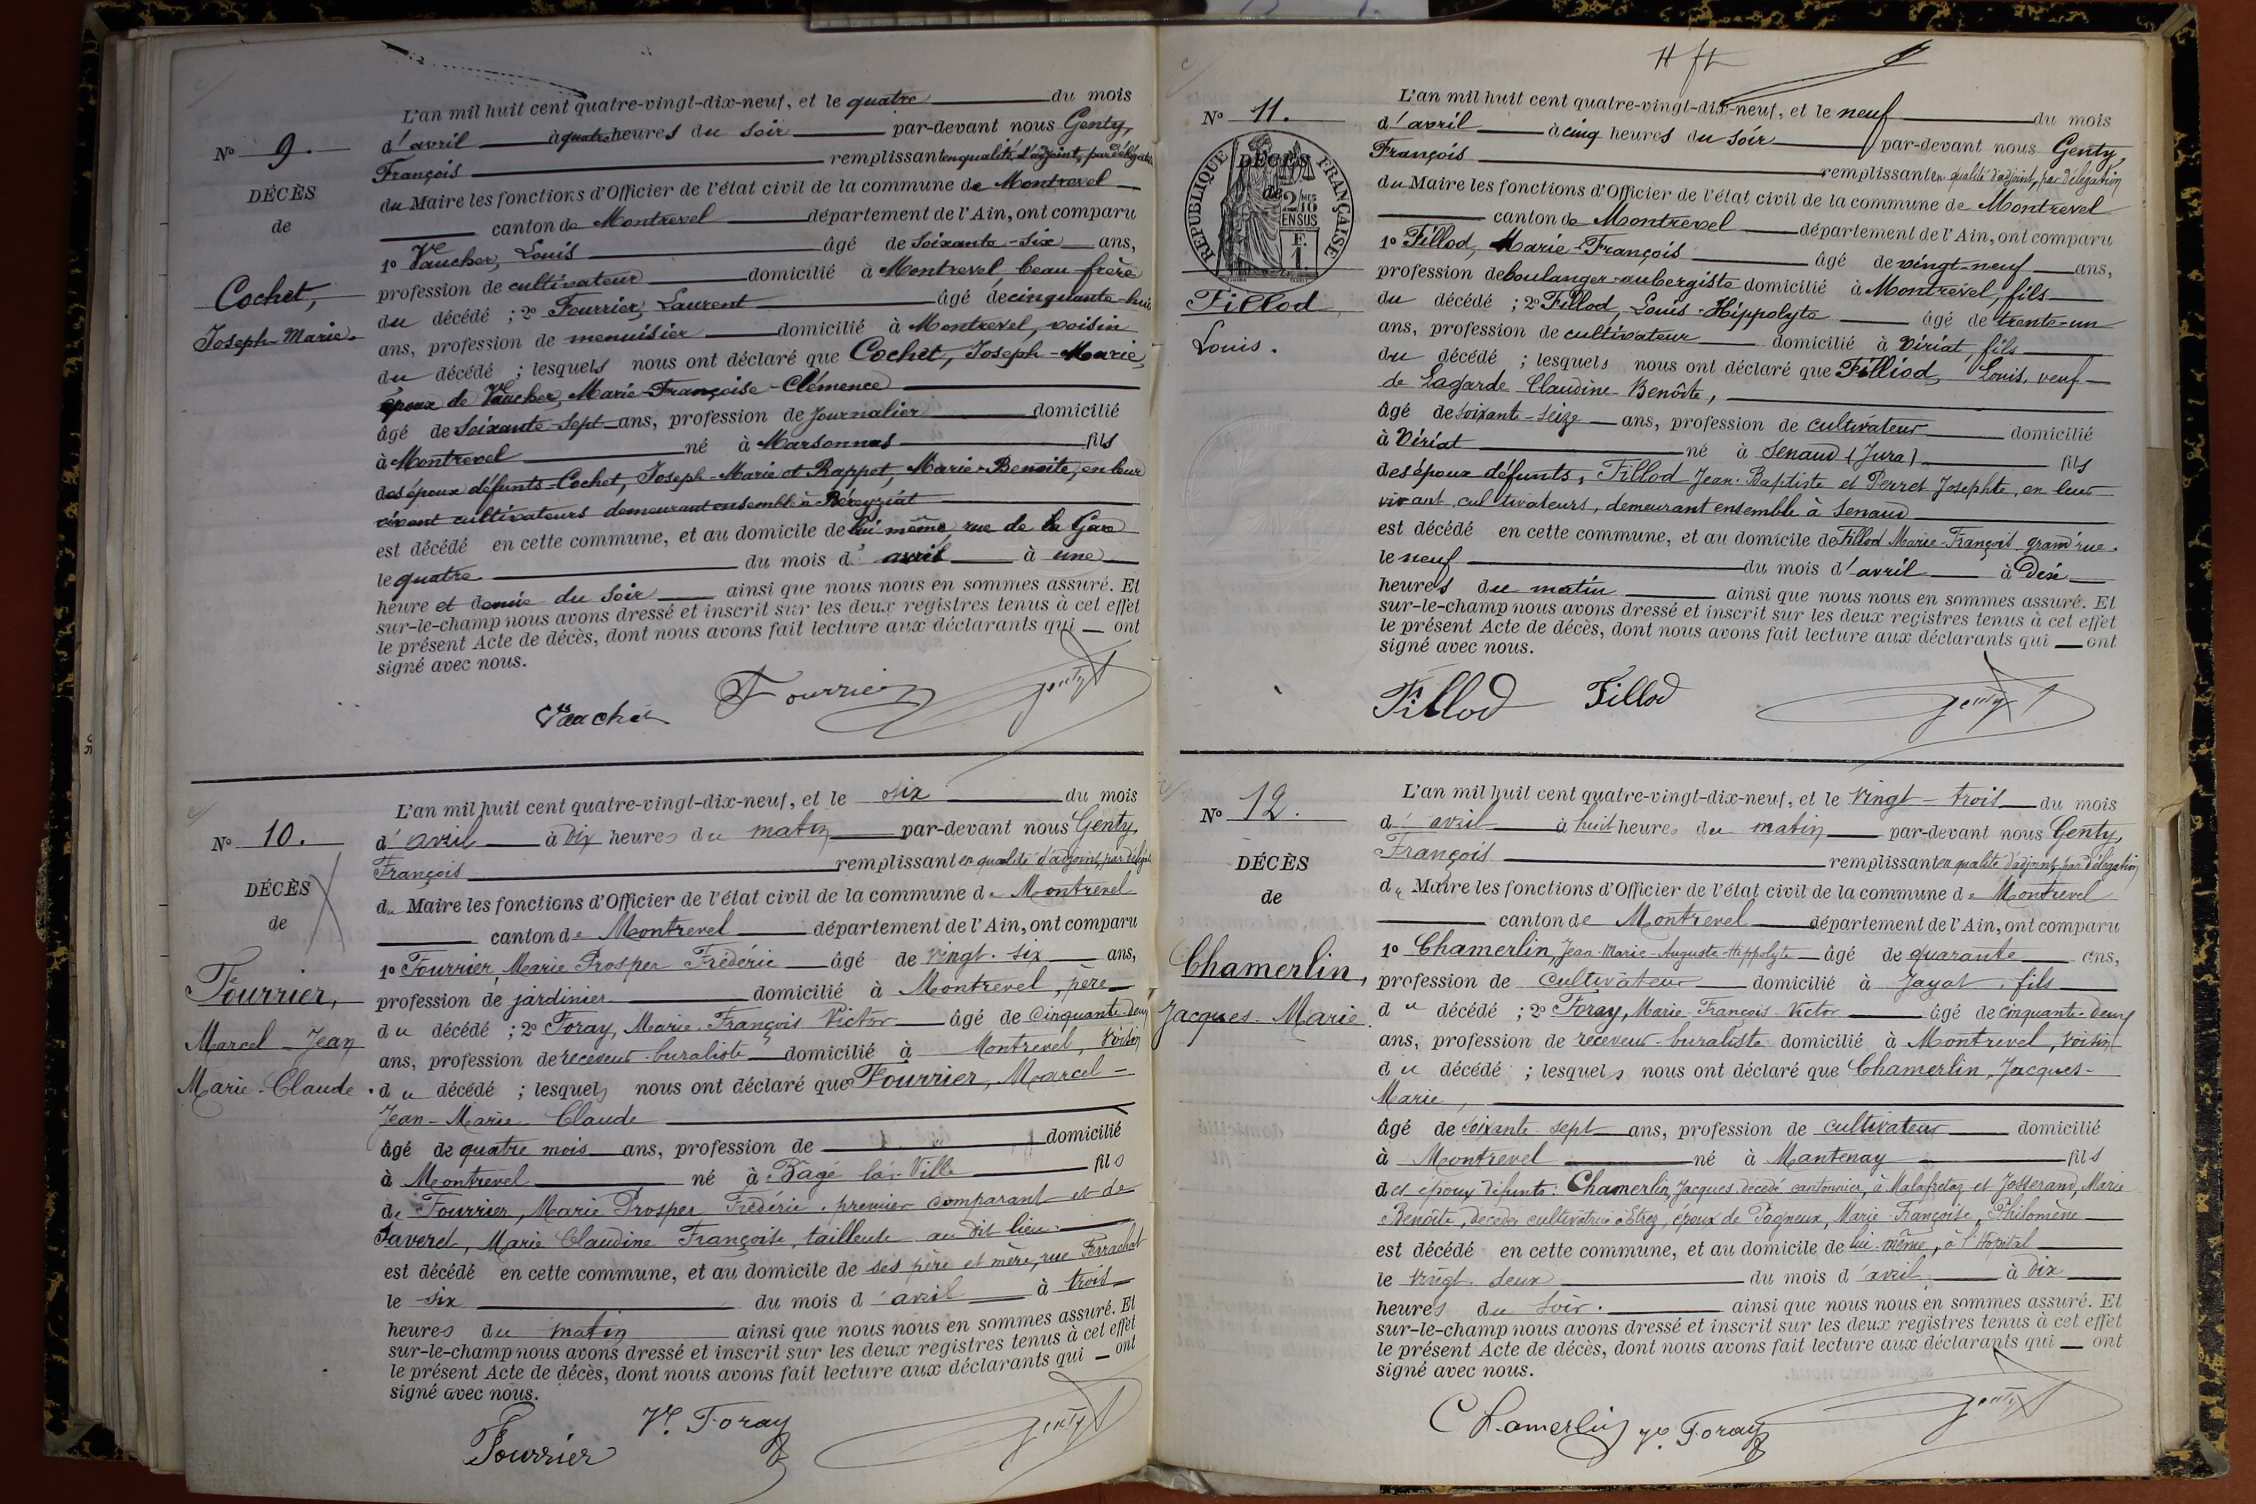 N° 9.
DÉCÈS
de
Cochet,
Joseph-Marie.
L'an mil huit cent quatre-vingt-dix-neuf, et le quatre du mois
d'avril à quatre heures du soir par-devant nous Genty,
François remplissant en qualité d'adjoint, par délégation
du Maire les fonctions d'Officier de l'état civil de la commune de Montrevel
canton de Montrevel département de l'Ain, ont comparu
1° Vaucher, Louis âgé de soixante-six ans,
profession de cultivateur domicilié à Montrevel, beau-frère
du décédé ; 2° Fourrier, Laurent âgé de cinquante-huit
ans, profession de menuisier domicilié à Montrevel, voisin
du décédé ; lesquels nous ont déclaré que Cochet, Joseph-Marie,
époux de Vaucher, Marie-Françoise-Clémence
âgé de soixante-sept ans, profession de journalier domicilié
à Montrevel né à Marsonnas fils
des époux défunts Cochet, Joseph-Marie et Rappet, Marie-Benoite, en leur
vivant cultivateurs demeurant ensemble à Béréyziat
est décédé en cette commune, et au domicile de lui-même, rue de la Gare
le quatre du mois d'avril à une
heure et demie du soir ainsi que nous nous en sommes assuré. Et
sur-le-champ nous avons dressé et inscrit sur les deux registres tenus à cet effet
le présent Acte de décès, dont nous avons fait lecture aux déclarants qui ont
signé avec nous.
Vaucher Fourrier genty
N° 10.
DÉCÈS
de
Fourrier,
Marcel-Jean
Marie-Claude.
L'an mil huit cent quatre-vingt-dix-neuf, et le six du mois
d'avril à dix heures du matin par-devant nous Genty,
François remplissant en qualité d'adjoint, par délégation
du Maire les fonctions d'Officier de l'état civil de la commune de Montrevel
canton de Montrevel département de l'Ain, ont comparu
1° Fourrier, Marie Prosper Frédéric âgé de vingt-six ans,
profession de jardinier domicilié à Montrevel, père
du décédé ; 2° Foray, Marie-François Victor âgé de cinquante-deux
ans, profession de receveur-buraliste domicilié à Montrevel, voisin
du décédé ; lesquels nous ont déclaré que Fourrier, Marcel-
Jean-Marie-Claude
âgé de quatre mois ans, profession de domicilié
à Montrevel né à Bagé-la-Ville fils
de Fourrier, Marie Prosper Frédéric, premier comparant et de
Faveret, Marie Claudine Françoise, tailleuse au dit lieu
est décédé en cette commune, et au domicile de ses père et mère, rue Ferrachat
le six du mois d'avril à trois
heures du matin ainsi que nous nous en sommes assuré. Et
sur-le-champ nous avons dressé et inscrit sur les deux registres tenus à cet effet
le présent Acte de décès, dont nous avons fait lecture aux déclarants qui ont
signé avec nous.
Fourrier Vr. Foray genty
N° 11.
RÉPUBLIQUE FRANÇAISE
DÉCÈS
de
2/10
EN SUS
F.
1
Fillod
Louis.
L'an mil huit cent quatre-vingt-dix-neuf, et le neuf du mois
d'avril à cinq heures du soir par-devant nous Genty,
François remplissant en qualité d'adjoint, par délégation
du Maire les fonctions d'Officier de l'état civil de la commune de Montrevel
canton de Montrevel département de l'Ain, ont comparu
1° Fillod, Marie-François âgé de vingt-neuf ans,
profession de boulanger-aubergiste domicilié à Montrevel, fils
du décédé ; 2° Fillod, Louis-Hippolyte âgé de trente-un
ans, profession de cultivateur domicilié à Viriat, fils
du décédé ; lesquels nous ont déclaré que Filliod, Louis, veuf
de Lagarde Claudine-Benoîte,
âgé de soixante-seize ans, profession de cultivateur domicilié
à Viriat né à Senaud (Jura) fils
des époux défunts, Fillod Jean-Baptiste et Perret Josephte, en leur
vivant cultivateurs, demeurant ensemble à Senaud
est décédé en cette commune, et au domicile de Fillod Marie-François grand'rue.
le neuf du mois d'avril à dix
heures du matin ainsi que nous nous en sommes assuré. Et
sur-le-champ nous avons dressé et inscrit sur les deux registres tenus à cet effet
le présent Acte de décès, dont nous avons fait lecture aux déclarants qui ont
signé avec nous.
Fillod Fillod genty
N° 12.
DÉCÈS
de
Chamerlin,
Jacques-Marie.
L'an mil huit cent quatre-vingt-dix-neuf, et le vingt-trois du mois
d'avril à huit heures du matin par-devant nous Genty,
François remplissant en qualité d'adjoint, par délégation
du Maire les fonctions d'Officier de l'état civil de la commune de Montrevel
canton de Montrevel département de l'Ain, ont comparu
1° Chamerlin, Jean-Marie-Auguste-Hippolyte âgé de quarante ans,
profession de cultivateur domicilié à Jayat, fils
du décédé ; 2° Foray, Marie-François-Victor âgé de cinquante-deux
ans, profession de receveur-buraliste domicilié à Montrevel, voisin
du décédé ; lesquels nous ont déclaré que Chamerlin, Jacques-
Marie,
âgé de soixante sept ans, profession de cultivateur domicilié
à Montrevel né à Mantenay fils
des époux défunts: Chamerlin, Jacques décédé cantonnier, à Malafretaz et Josserand, Marie
Benoîte, décédée cultivatrice à Etrez, époux de Pagneux, Marie-Françoise, Philomène
est décédé en cette commune, et au domicile de lui-même, à l'Hôpital
le vingt-deux du mois d'avril à dix
heures du soir. ainsi que nous nous en sommes assuré. Et
sur-le-champ nous avons dressé et inscrit sur les deux registres tenus à cet effet
le présent Acte de décès, dont nous avons fait lecture aux déclarants qui ont
signé avec nous.
Chamerlin Vr. Foray genty